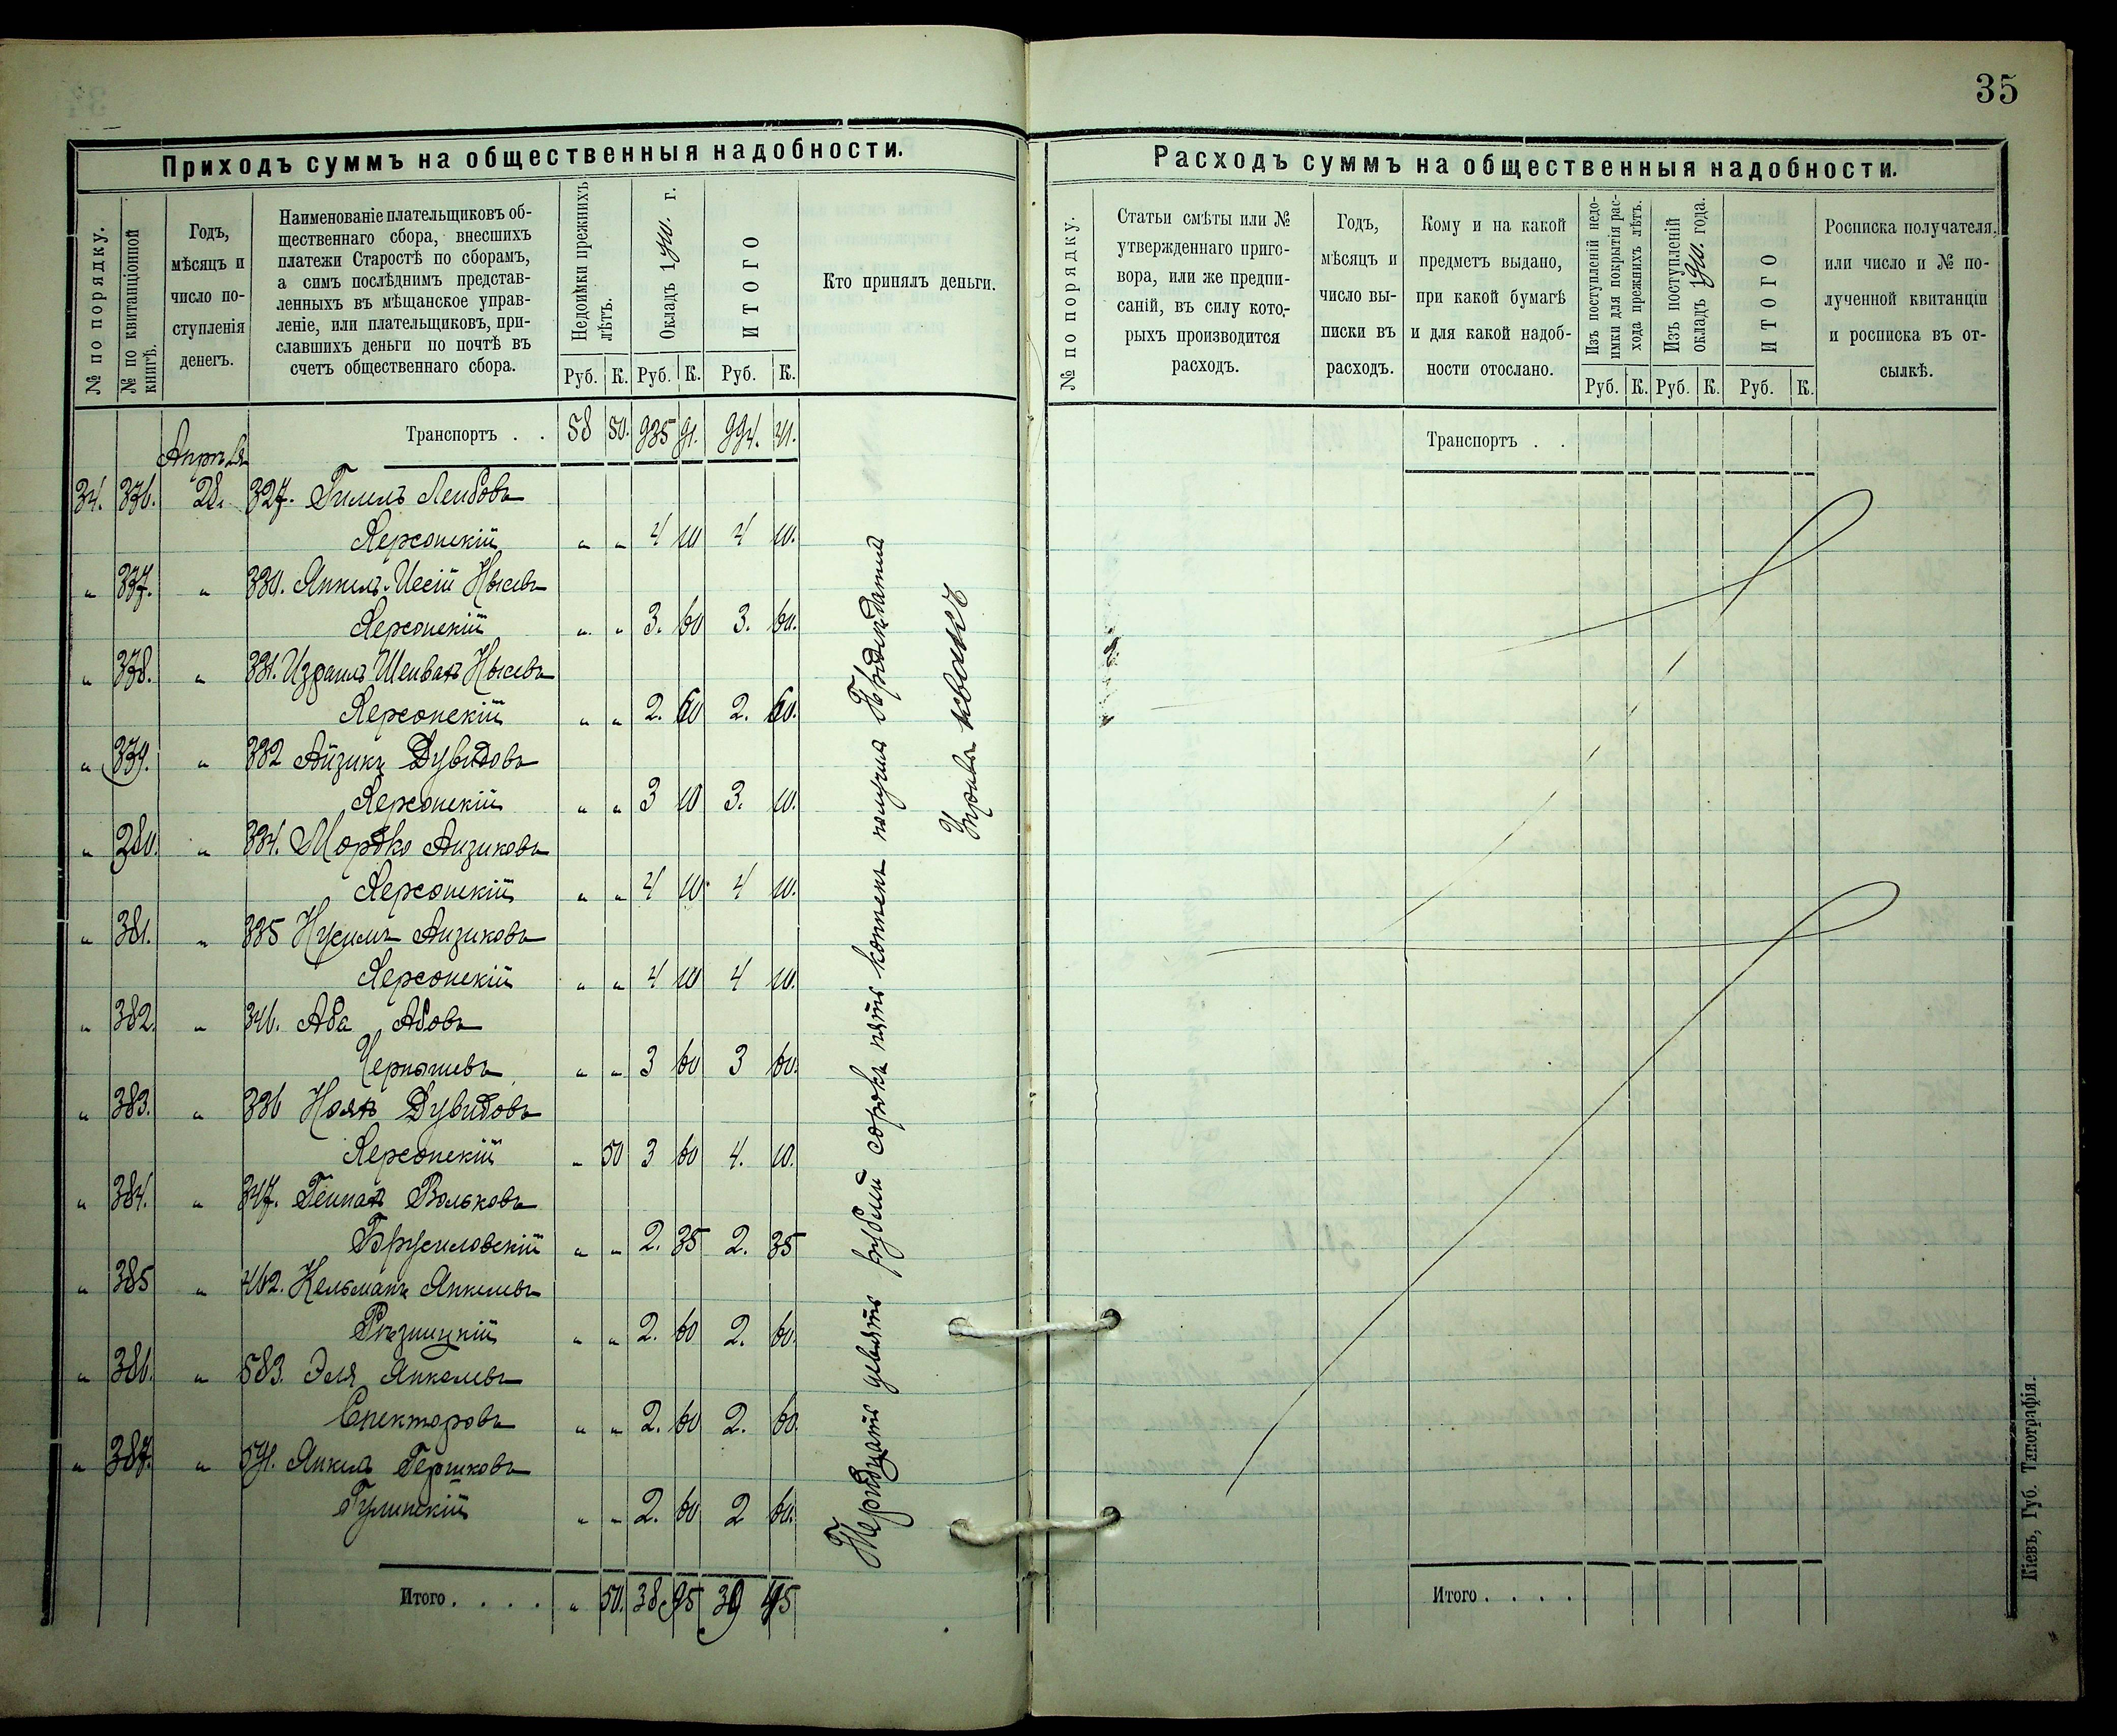 35
Приходъ суммъ на общественныя надобности.
№ по порядку.
№ по квитанціонной книгѣ.
Годъ, мѣсяцъ и число поступленія денегъ.
Наименованіе плательщиковъ об-
щественнаго сбора, внесшихъ
платежи Старостѣ по сборамъ,
а симъ послѣднимъ представ-
ленныхъ въ мѣщанское управ-
леніе, или плательщиковъ, при-
славшихъ деньги по почтѣ въ
счетъ общественнаго сбора.
Недоимки прежнихъ лѣтъ.
Окладъ 1900. г.
ИТОГО
Кто принялъ деньги.
Руб. К. Руб. К. Руб. К.
Транспортъ . . 58 50. 935 91. 994. 41.
Апрѣля
34. 376. 28. 327. Гилель Лейбовъ
Херсонскій " " 4 10 4 10.
" 377. " 330. Янкель-Иссій Нысевъ
Херсонскій " " 3. 60 3. 60.
" 378. " 331. Израиль Шенвахъ Нысевъ
Херсонскій " " 2. 60 2. 60.
" 379. " 332 Айзикъ Дувидовъ
Херсонскій " " 3 10 3. 10.
" 380. " 334. Мордко Айзиковъ
Херсонскій " " 4 10. 4 10.
" 381. " 335 Нусимъ Айзиковъ
Херсонскій " " 4 10 4 10.
" 382. " 346. Аба Абовъ
Чернышевъ " " 3 60 3 60.
" 383. " 336 Нояхъ Дувидовъ
Херсонскій " 50 3 60 4. 10.
" 384. " 347. Генпахъ Вольковъ
Брусиловскій " " 2. 35 2. 35
" 385 " 462. Кельманъ Янкелевъ
Рѣзницкій " " 2. 60 2. 60.
" 386. " 583. Эля Янкелевъ
Спекторовъ " " 2. 60 2. 60.
" 387. " 591. Янкель Гершковъ
Гулинскій " " 2. 60 2 60.
Итого . . . . " 50. 38 95 39 45
Тридцать девять рублей сорокъ пять копеекъ получилъ
Расходъ суммъ на общественныя надобности.
№ по порядку.
Статьи смѣты или №
утвержденнаго приго-
вора, или же предпи-
саній, въ силу кото-
рыхъ производится
расходъ.
Годъ,
мѣсяцъ и
число вы-
писки въ
расходъ.
Кому и на какой
предметъ выдано,
при какой бумагѣ
и для какой надоб-
ности отослано.
Изъ поступленій недо-
имки для покрытія рас-
хода прежнихъ лѣтъ.
Изъ поступленій
окладъ 1900. года.
ИТОГО
Росписка получателя,
или число и № по-
лученной квитанціи
и росписка въ от-
сылкѣ.
Руб. К. Руб. К. Руб. К.
Транспортъ . .
Итого . . . .
Кіевъ, Губ. Типографія.